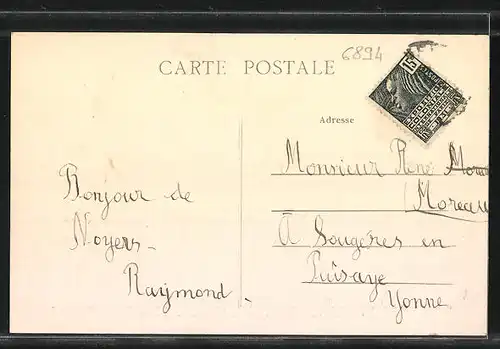 6894
CARTE POSTALE
15
Adresse
Bonjour de
Noyers -
Raymond.
Monsieur René
Moreau
À Sougères en
Puisaye
Yonne